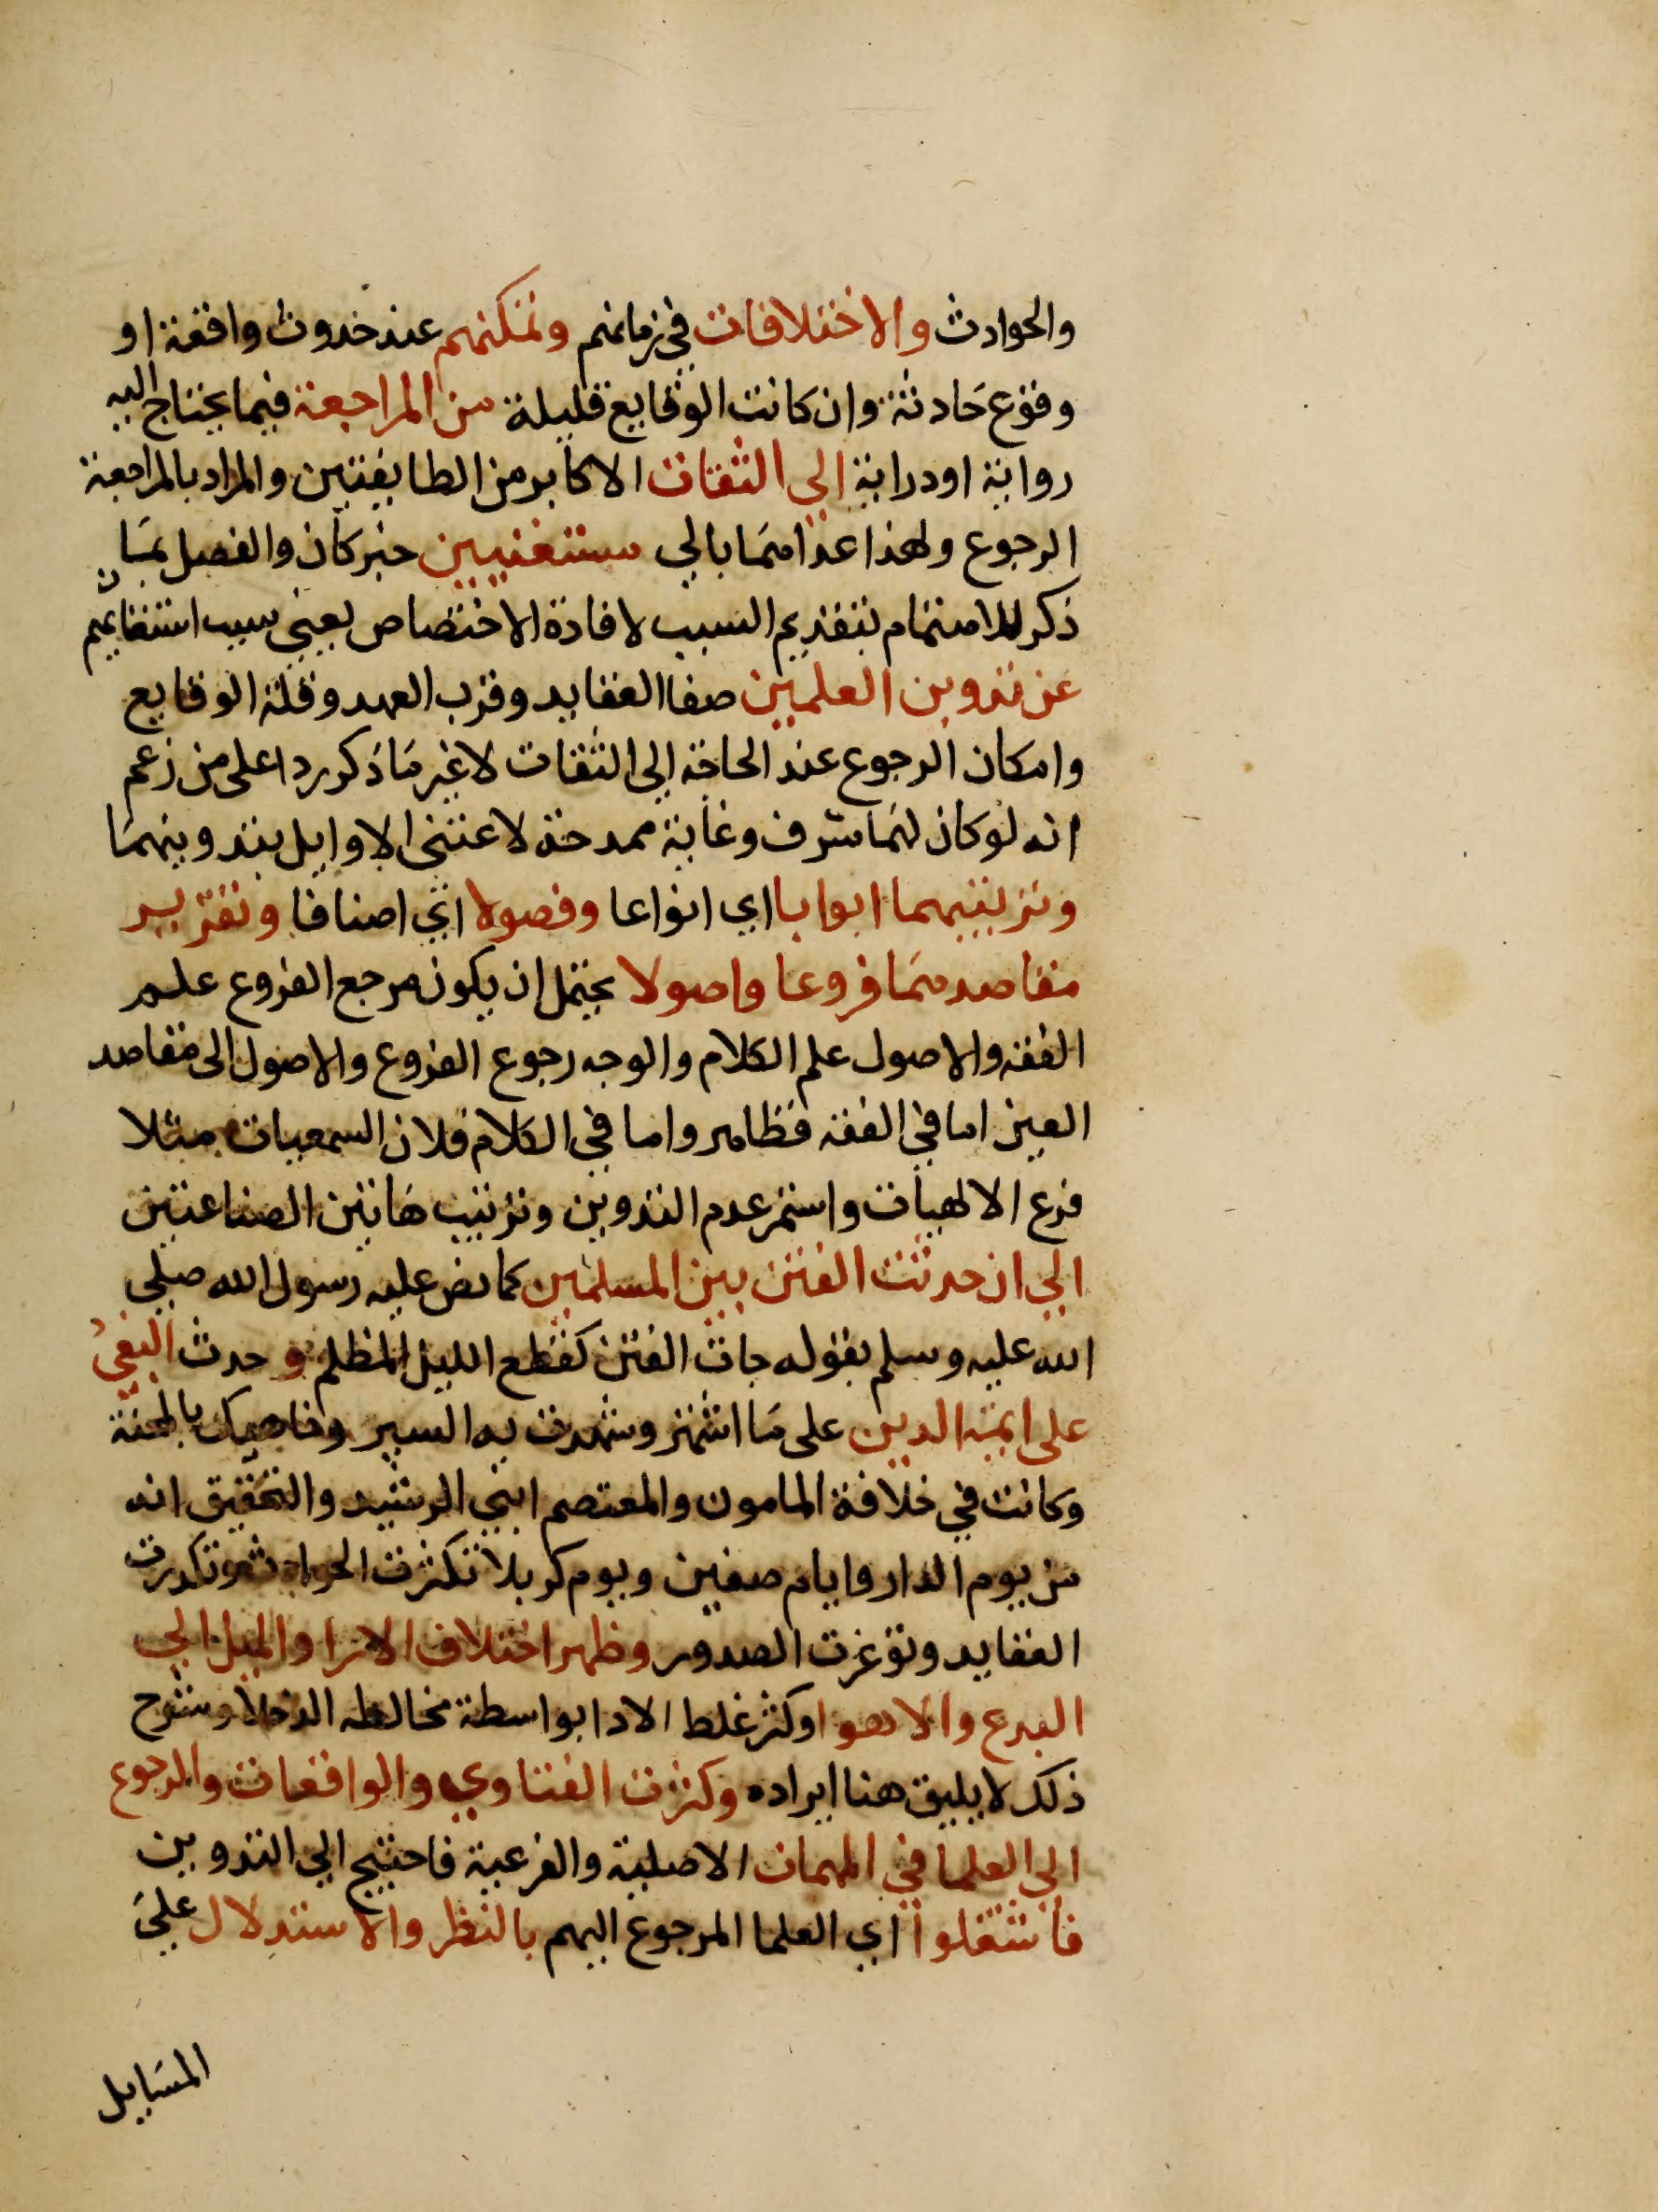 والحوادث والاختلافات في زمانهم وتمكنهم عند حدوث واقعة او
وقوع حادثة وان كانت الوقايع قليلة من المراجعة فيما يحتاج اليه
رواية او دراية الي الثقات الاكابر من الطايفتين والمراد بالمراجعة
الرجوع ولهذا عداهما بالي مستغنيين خبر كان والفصل بما
ذكر للاهتمام بتقديم السبب لافادة الاختصاص يعني سبب استغنايهم
عن تدوين العلمين صفا العقايد وقرب العهد وقلة الوقايع
وامكان الرجوع عند الحاجة الي الثقات لا غير ما ذكر ردا على من زعم
انه لو كان لهما شرف وغاية ممدحة لاعتني الاوايل بتدوينهما
وترتيبهما ابوابا اي انواعا وفصولا اي اصنافا وتقرير
مقاصدهما فروعا واصولا يحتمل ان يكون مرجع الفروع علم
الفقه والاصول علم الكلام والوجه رجوع الفروع والاصول الى مقاصد
العين اما في الفقه فظاهر واما في الكلام فلان السمعيات مثلا
فرع الالهيات واستمر عدم التدوين وترتيب هاتين الصناعتين
الي ان حدثت الفتن بين المسلمين كما نص عليه رسول الله صلي
الله عليه وسلم بقوله جات الفتن كقطع الليل المظلم وحدث البغي
على ايمة الدين على ما اشتهر وشهدت به السير وناهيك بالمحنة
وكانت في خلافة المامون والمعتصم ابني الرشيد والتحقيق انه
من يوم الدار وايام صفين ويوم كربلا تكثرت الحوادث وتكدرت
العقايد وتوغرت الصدور وظهر اختلاف الارا والميل الي
البدع والاهوا وكثر غلط الادا بواسطة مخالطه الدخلا وشرح
ذلك لا يليق هنا ايراده وكثرت الفتاوي والواقعات والرجوع
الي العلما في المهمات الاصلية والفرعية فاحتيج الي التدوين
فاشتغلوا اي العلما المرجوع اليهم بالنظر والاستدلال علي
المسايل